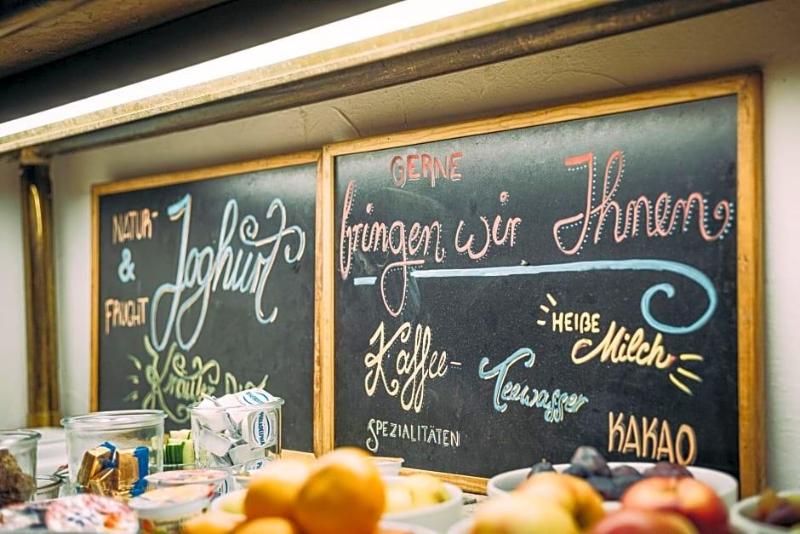 NATUR-
& Joghurt
FRUCHT
Kräuter
GERNE
bringen wir Ihnen
HEIßE
Milch
Kaffee-
Teewasser
SPEZIALITÄTEN
KAKAO